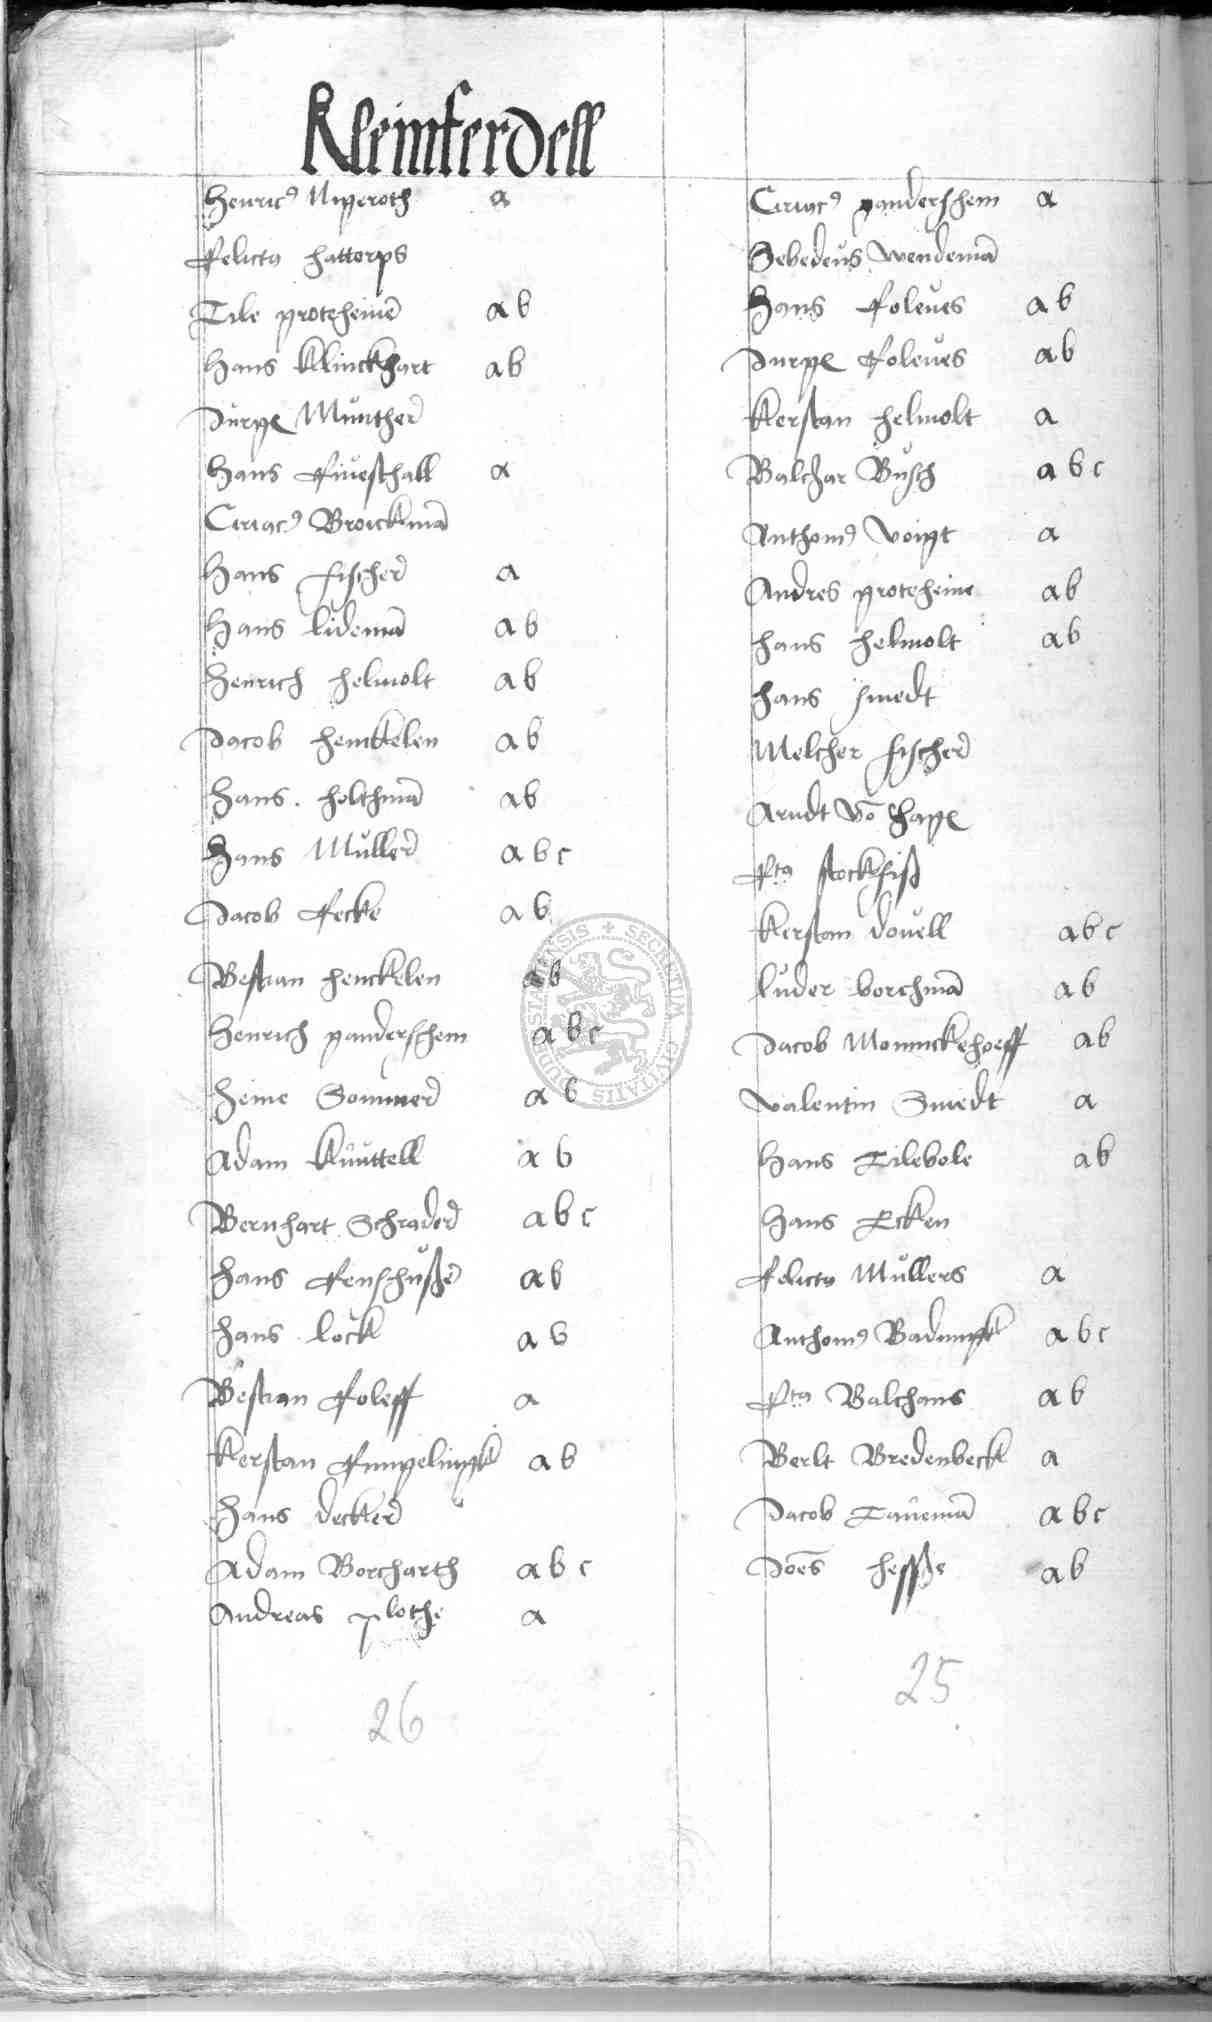 Kleinferdell
Henricꝰ Nigeroth a
Relicta Hattorps
Tile groteheinē ab
Hans Klinckhart ab
Jurge Munther
Hans Rivesthall a
Ciriacꝰ Broickmā
Hans Fischer a
Hans lidemā ab
Henrich Helmolt ab
Jacob Henckelen ab
Hans Holthmā ab
Hans Muller abc
Jacob Recke ab
Bestian Henckelen ab
Henrich gandersHem abc
Heine Sommer ab
Adam Knuttell ab
Bernhart Schrader abc
Hans Renschußē ab
Hans lock ab
Bestian Roleff a
Kerstan Rungelingk ab
Hans decker
Adam Borcharth abc
Andreas plothe a
26
Ciriacꝰ gandersHem a
Zebedeus Wendemā
Hans Roleves ab
Jurge Roleves ab
Kerstan Helmolt a
Baltzar Busch abc
Anthoniꝰ Voigt a
Andres groteheine ab
Hans Helmolt ab
Hans smedt
Melcher Fischer
Arndt vō Hage
Rta stockfiß
Kerstan dovell abc
luder borchmā ab
Jacob Monnickehoeff ab
Valentin Smedt a
Hans Tilebole ab
Hans Ecken
Relicta Mullers a
Anthoniꝰ Badungk abc
Rta Balthans ab
Berlt Bredenbeck a
Jacob Tavemā abc
Joēs Hesße ab
25
SECRETUM CIVITATIS QUIDERSTADENSIS